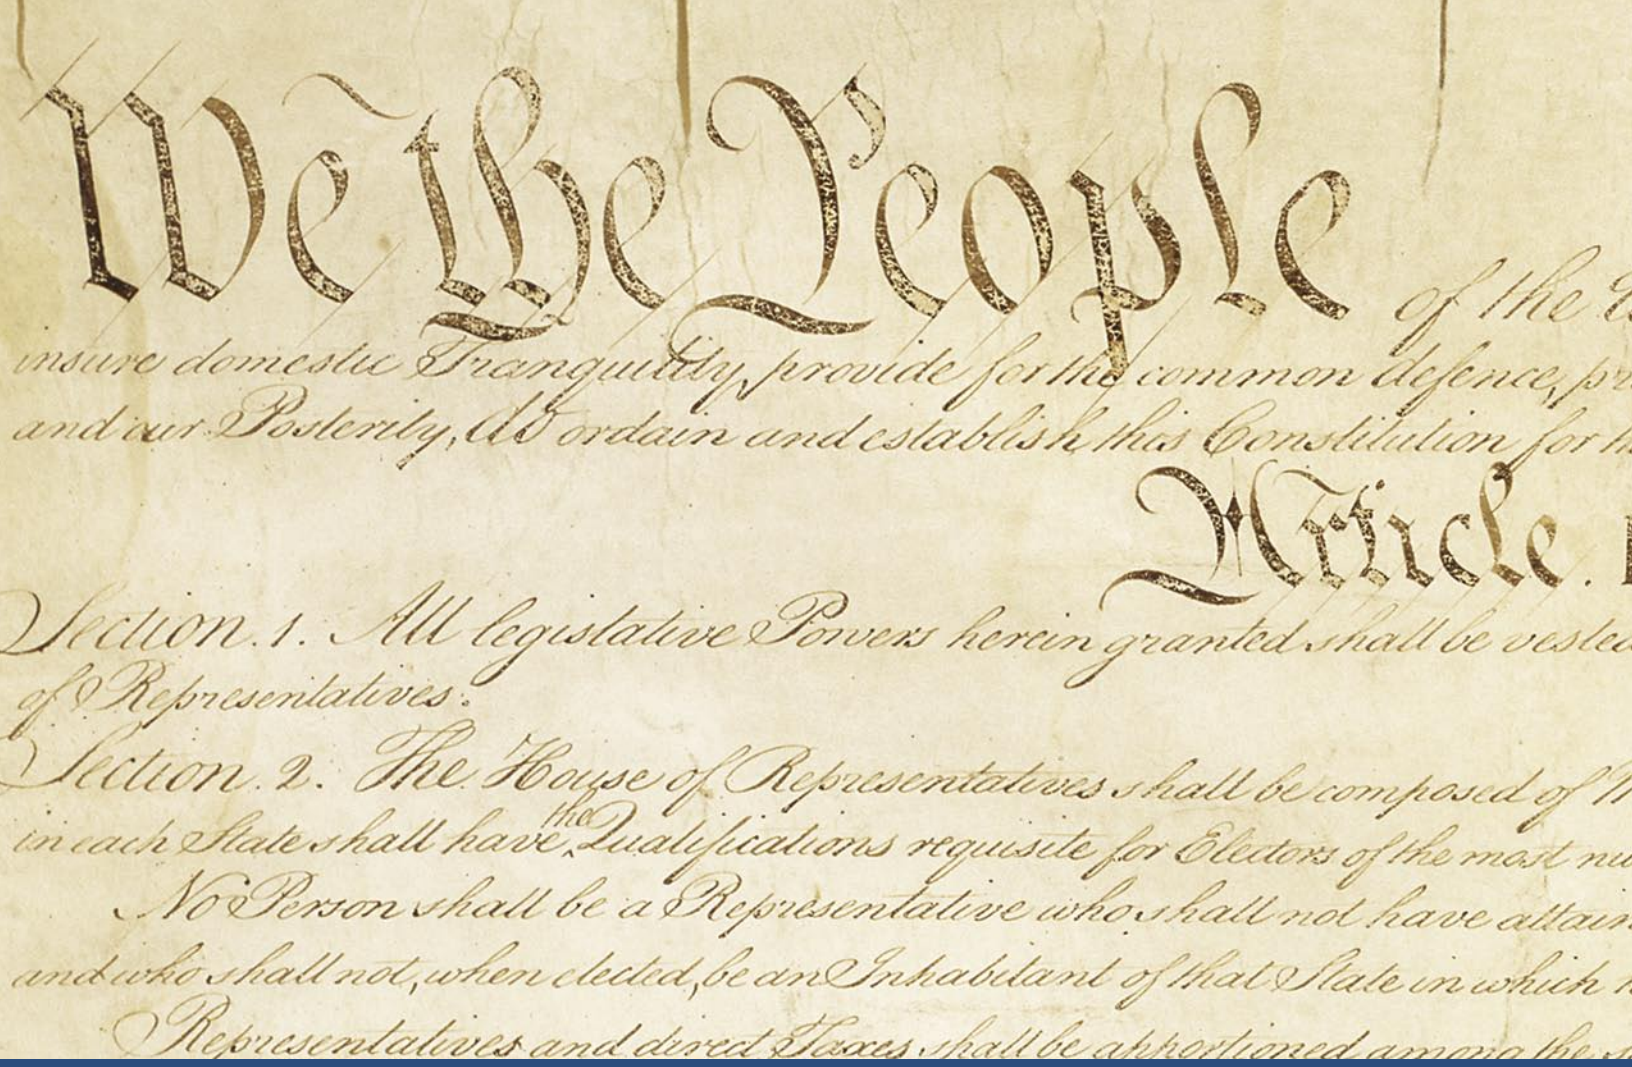 We the People of the
insure domestic Tranquility, provide for the common defence,
and our Posterity, do ordain and establish this Constitution for
Article.
Section. 1. All legislative Powers herein granted shall be vested
of Representatives.
Section. 2. The House of Representatives shall be composed of
in each State shall have the Qualifications requisite for Electors of the most
No Person shall be a Representative who shall not have
and who shall not, when elected, be an Inhabitant of that State in which
Representatives and direct Taxes shall be apportioned among the